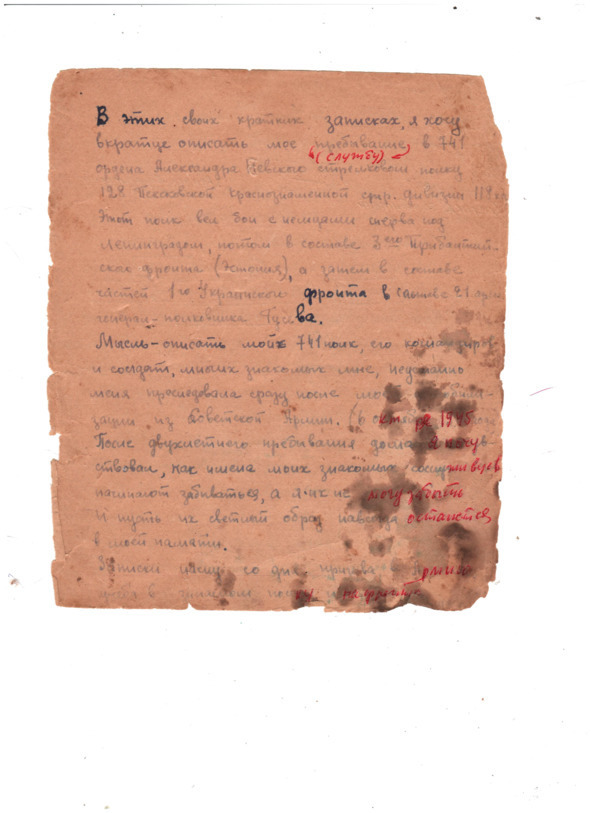 В этих своих кратких записках, я хочу
вкратце описать мое пребывание в 741
(службу)
ордена Александра Невского стрелковом полку
128 Псковской краснознаменной стр. дивизии 118
Этот полк вел бои с немцами сперва под
Ленинградом, потом в составе 3его Прибалтий-
ского фронта (Эстония), а затем в составе
частей 1го Украинского фронта в составе 21 армии
генерал-полковника Гусева.
Мысль - описать мой 741 полк, его командиров
и солдат, многих знакомых мне, неустанно
меня преследовала сразу после моей
зации из Советской Армии. (в октябре 1945
После двухлетнего пребывания дома я почув
ствовал, как имена моих знакомых сослуживцев
начинают забываться, а я их не могу забыть
И пусть их светлый образ навсегда останется
в моей памяти.
Записки пишу со дня призыва в Армию
на фронте